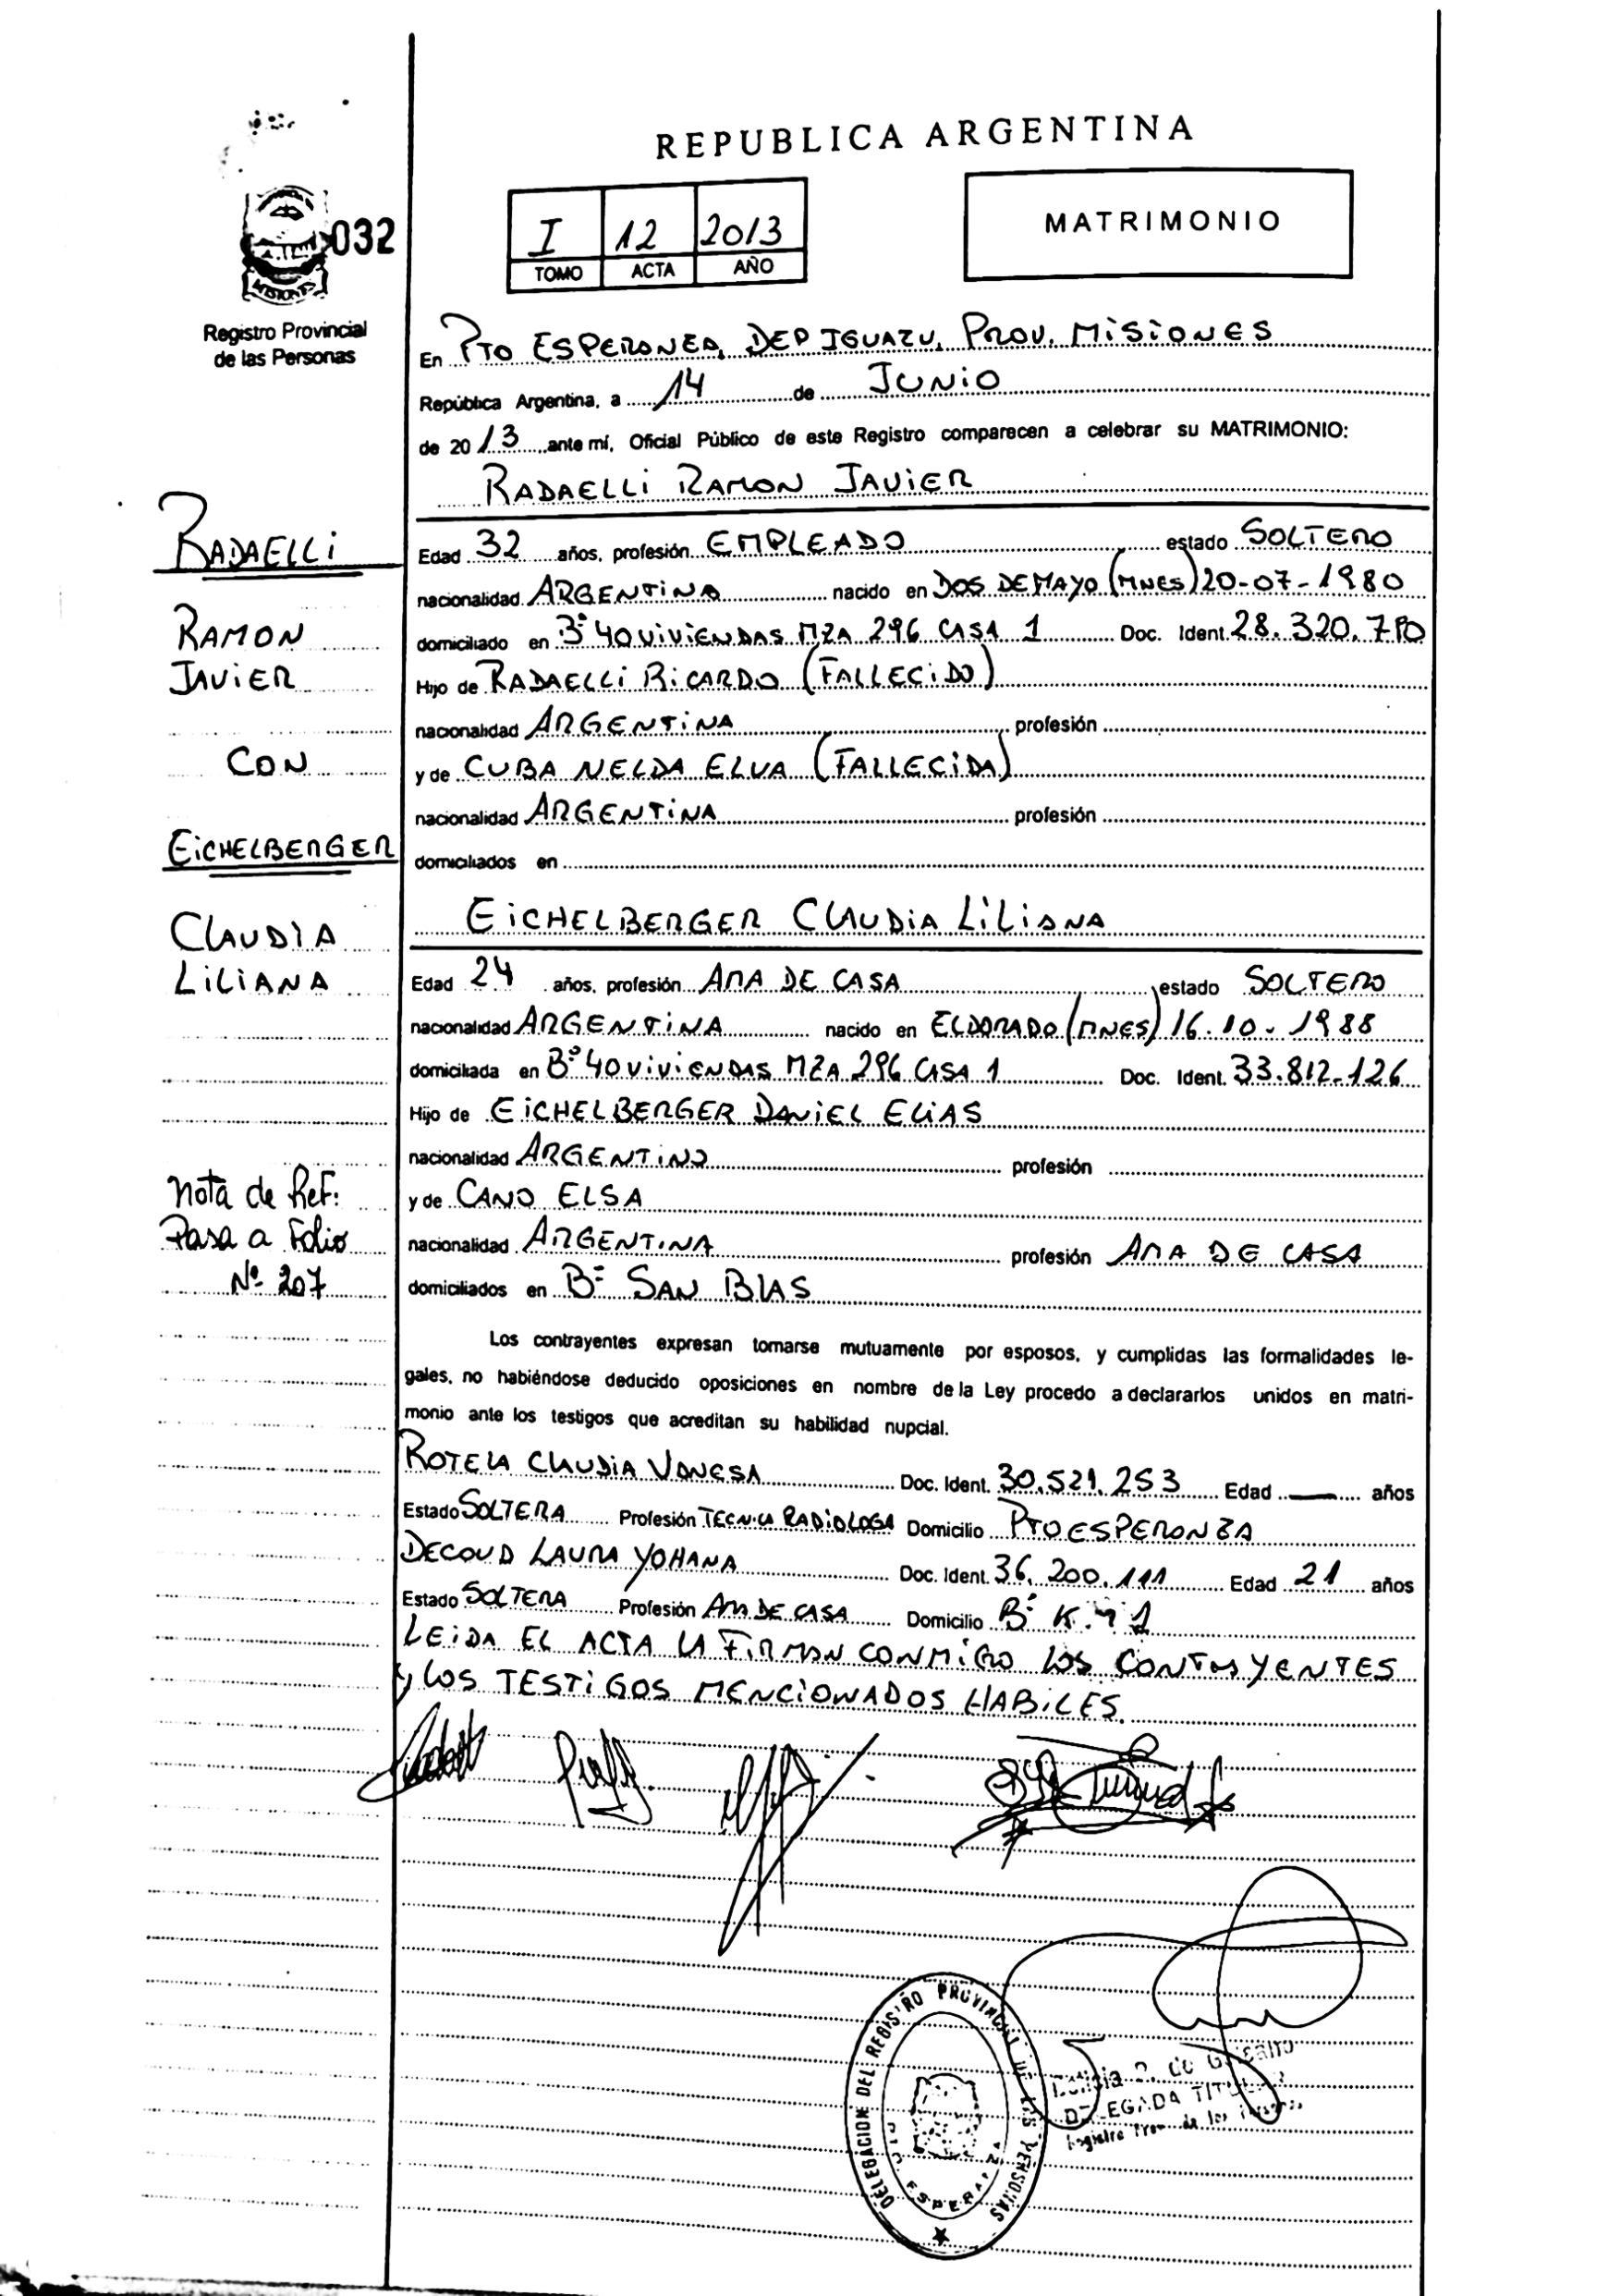 REPUBLICA ARGENTINA
032
MISIONES
Registro Provincial
de las Personas
I 12 2013
TOMO ACTA AÑO
MATRIMONIO
En PTO ESPERANZA, DEP IGUAZU, PROV. MISIONES
República Argentina, a 14 de JUNIO
de 2013 ante mí, Oficial Público de este Registro comparecen a celebrar su MATRIMONIO:
RADAELLI RAMON JAVIER
RADAELLI
RAMON
JAVIER
CON
EICHELBERGER
CLAUDIA
LILIANA
Nota de Ref:
Pasa a Folio
Nº 207
Edad 32 años, profesión EMPLEADO estado SOLTERO
nacionalidad ARGENTINA nacido en DOS DE MAYO (MNES) 20-07-1980
domiciliado en Bº 40 VIVIENDAS MZA 296 CASA 1 Doc. Ident. 28.320.
Hijo de RADAELLI RICARDO (FALLECIDO)
nacionalidad ARGENTINA profesión
y de CUBA NELDA ELVA (FALLECIDA)
nacionalidad ARGENTINA profesión
domiciliados en
EICHELBERGER CLAUDIA LILIANA
Edad 24 años, profesión AMA DE CASA estado SOLTERO
nacionalidad ARGENTINA nacido en ELDORADO (MNES) 16.10.1988
domiciliada en Bº 40 VIVIENDAS MZA 296 CASA 1 Doc. Ident. 33.812.126
Hijo de EICHELBERGER DANIEL ELIAS
nacionalidad ARGENTINO profesión
y de CANO ELSA
nacionalidad ARGENTINA profesión AMA DE CASA
domiciliados en Bº SAN BLAS
Los contrayentes expresan tomarse mutuamente por esposos, y cumplidas las formalidades le-
gales, no habiéndose deducido oposiciones en nombre de la Ley procedo a declararlos unidos en matri-
monio ante los testigos que acreditan su habilidad nupcial.
ROTELA CLAUDIA VANESA Doc. Ident. 30.521.253 Edad — años
Estado SOLTERA Profesión TECNICA RADIOLOGA Domicilio PTO ESPERANZA
DECOUD LAURA YOHANA Doc. Ident. 36.200.111 Edad 21 años
Estado SOLTERA Profesión AMA DE CASA Domicilio Bº K.M 1
LEIDA EL ACTA LA FIRMAN CONMIGO LOS CONTRAYENTES
Y LOS TESTIGOS MENCIONADOS HABILES.
DELEGACION DEL REGISTRO PROVINCIAL DE LAS PERSONAS
PTO. ESPERANZA
DELEGADA TITULAR
Registro Prov. de las Personas